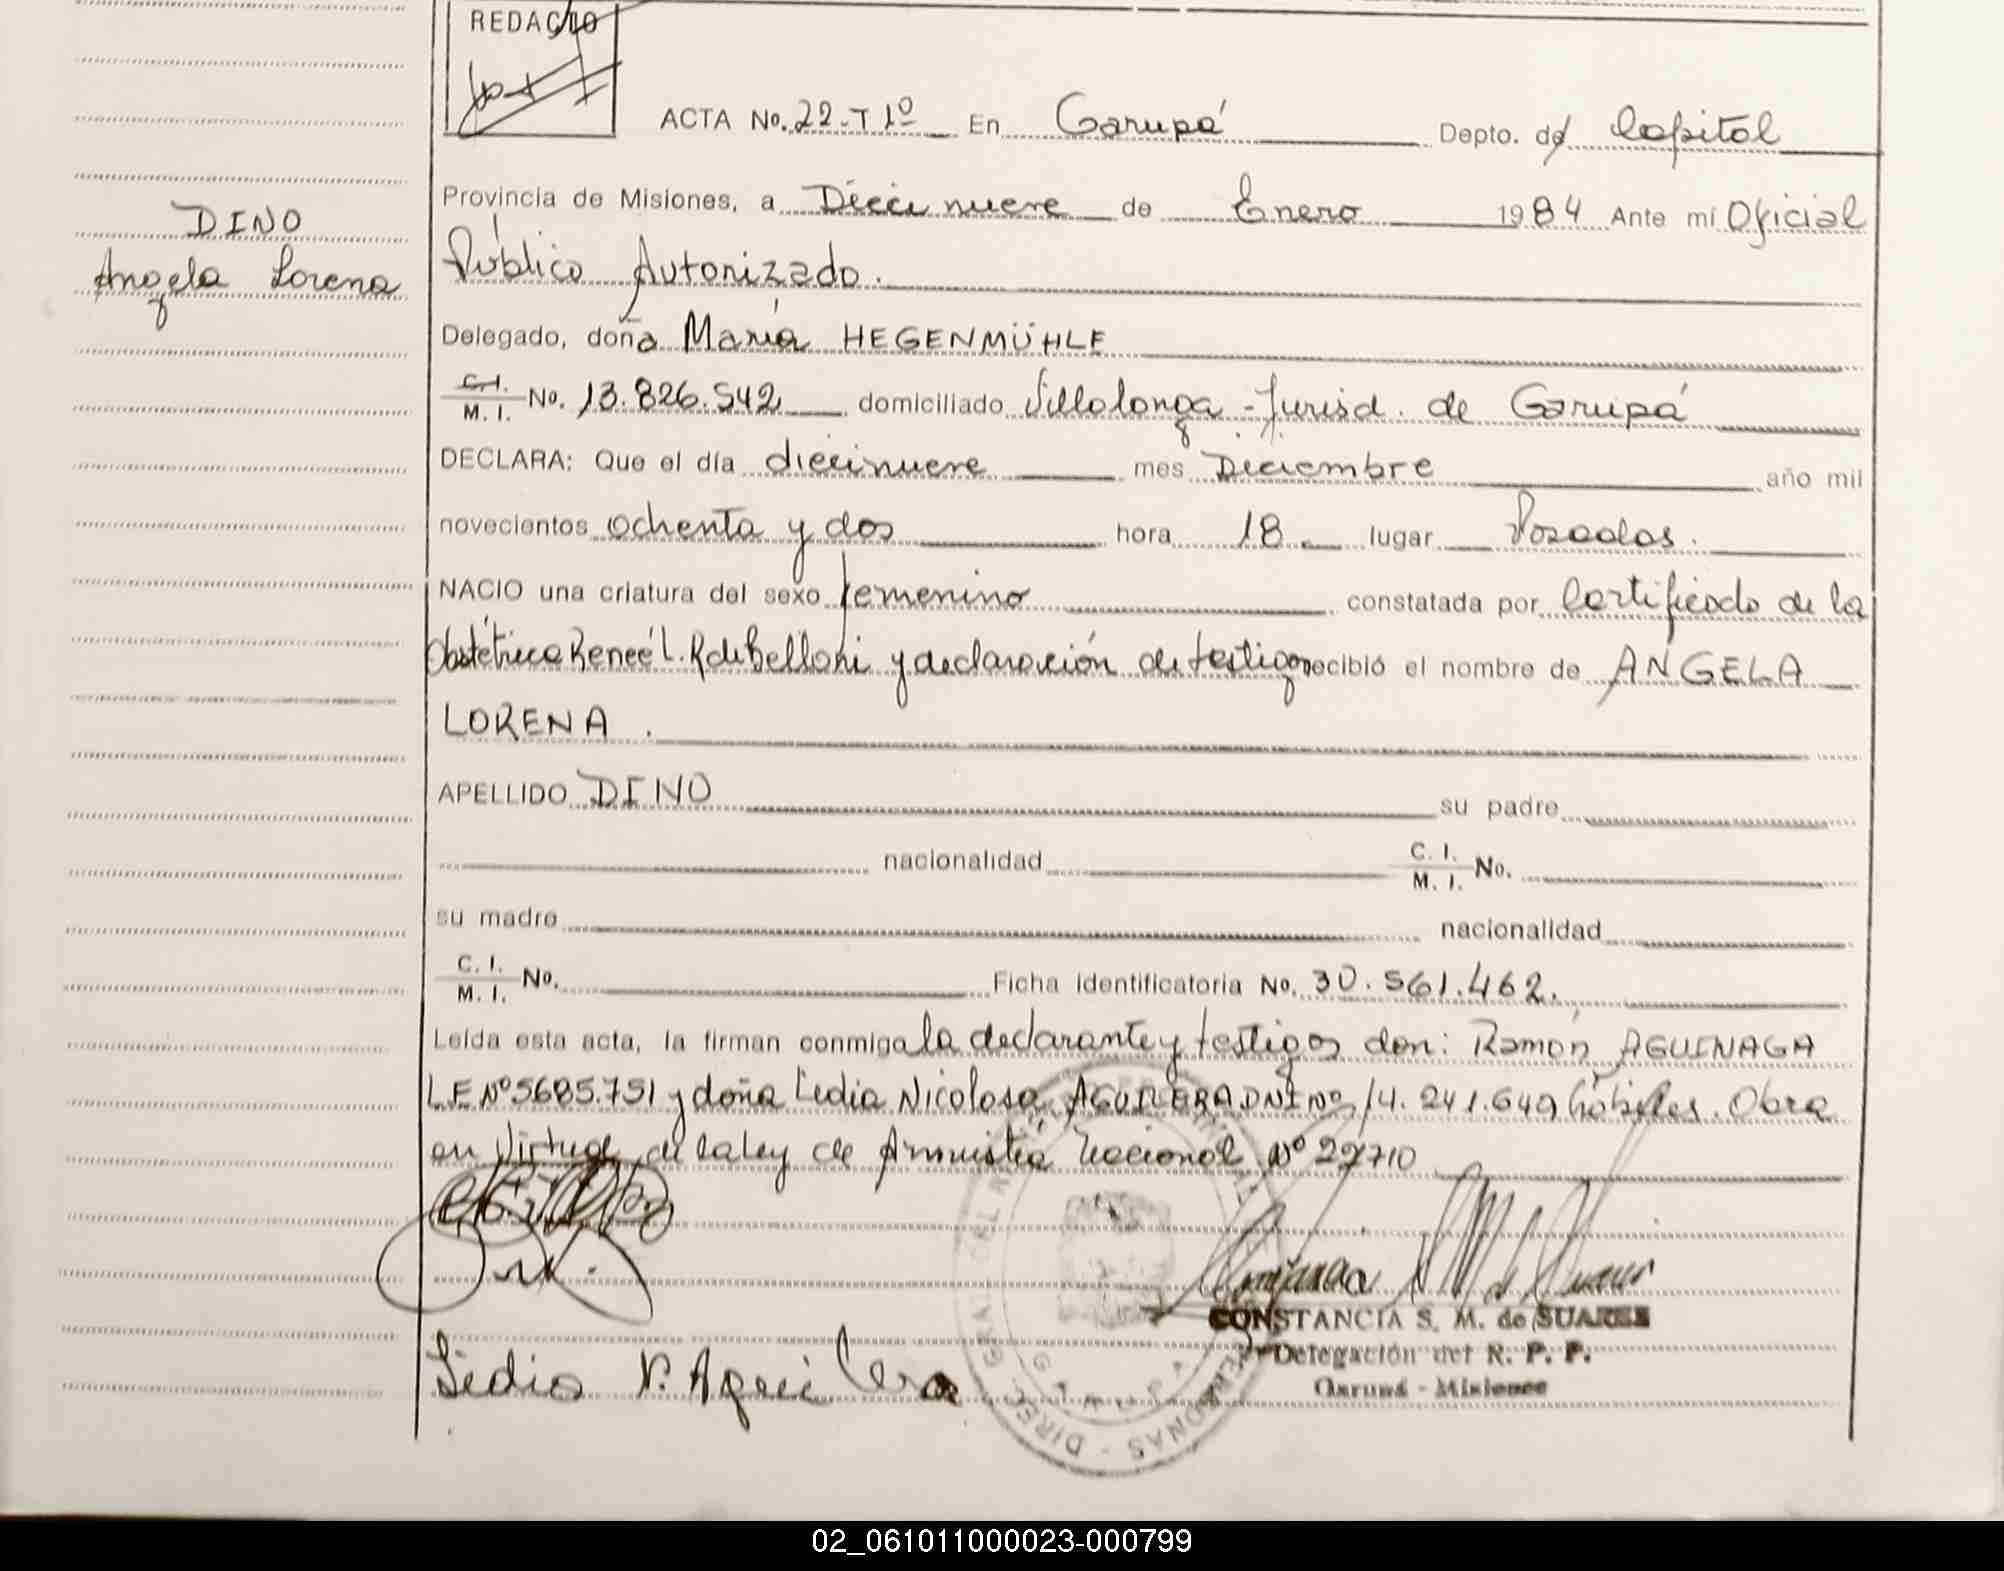 REDACTO
ACTA No. 22-T 1º En Garupá Depto. de Capital
DINO
Angela Lorena
Provincia de Misiones, a Diecinueve de Enero 1984 Ante mí Oficial
Público Autorizado.
Delegado, doña María HEGENMÜHLE
C.I. M. I. No. 13.826.542 domiciliado Villalonga - Jurisd. de Garupá
DECLARA: Que el día diecinueve mes Diciembre año mil
novecientos ochenta y dos hora 18 lugar Posadas.
NACIO una criatura del sexo femenino constatada por Certificado de la
Obstétrica Reneé L. R de Belloni y declaración de testigos recibió el nombre de ANGELA
LORENA.
APELLIDO DINO su padre
nacionalidad C. I. M. I. No.
su madre nacionalidad
C. I. M. I. No. Ficha identificatoria No. 30.561.462.
Leída esta acta, la firman conmigo la declarante y testigos don: Ramón AGUINAGA
LE Nº 5685.751 y doña Lidia Nicolasa AGUILERA DNI Nº 14.241.649 hábiles. Obra
en Virtud de la ley de Amnistía Nacional Nº 22710
Lidia N. Aguilera
CONSTANCIA S. M. de SUAREZ
Delegación del R. P. P.
Garupá - Misiones
02_061011000023-000799